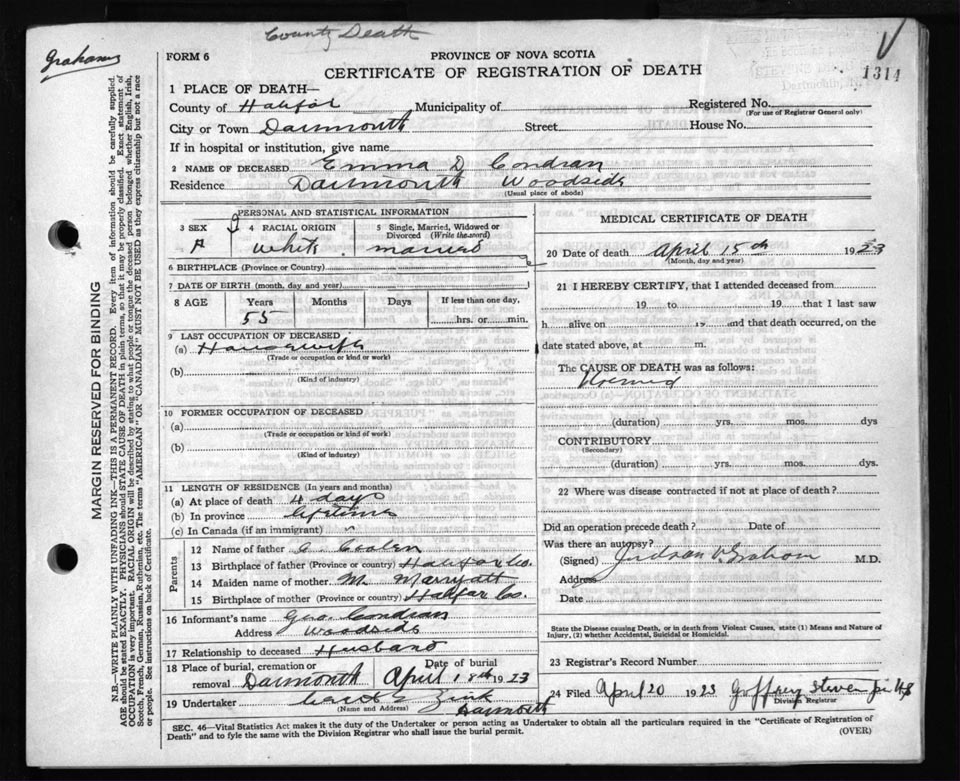 County Death
Grahams
1314
FORM 6
PROVINCE OF NOVA SCOTIA
CERTIFICATE OF REGISTRATION OF DEATH
1 PLACE OF DEATH—
County of Halifax Municipality of Registered No.
(For use of Registrar General only)
City or Town Dartmouth Street House No.
If in hospital or institution, give name
2 NAME OF DECEASED Emma D Condran
Residence Dartmouth Woodside
(Usual place of abode)
PERSONAL AND STATISTICAL INFORMATION
3 SEX 4 RACIAL ORIGIN 5 Single, Married, Widowed or Divorced (Write the word)
F white married
6 BIRTHPLACE (Province or Country)
7 DATE OF BIRTH (month, day and year)
8 AGE Years Months Days If less than one day,
55 hrs. or min.
9 LAST OCCUPATION OF DECEASED
(a) Housewife
(Trade or occupation or kind of work)
(b)
(Kind of industry)
10 FORMER OCCUPATION OF DECEASED
(a)
(Trade or occupation or kind of work)
(b)
(Kind of industry)
11 LENGTH OF RESIDENCE (In years and months)
(a) At place of death 4 days
(b) In province lifetime
(c) In Canada (if an immigrant)
Parents
12 Name of father
13 Birthplace of father (Province or country) Halifax Co.
14 Maiden name of mother M. Marryatt
15 Birthplace of mother (Province or country) Halifax Co.
16 Informant's name Geo. Condran
Address Woodside
17 Relationship to deceased Husband
18 Place of burial, cremation or removal Dartmouth Date of burial April 18th 1923
19 Undertaker Zink
(Name and Address) Dartmouth
MEDICAL CERTIFICATE OF DEATH
20 Date of death April 15th 1923
(Month, day and year)
21 I HEREBY CERTIFY, that I attended deceased from
19 to 19 that I last saw
h alive on 19 and that death occurred, on the
date stated above, at m.
The CAUSE OF DEATH was as follows:
(duration) yrs. mos. days
CONTRIBUTORY
(Secondary)
(duration) yrs. mos. dys.
22 Where was disease contracted if not at place of death?
Did an operation precede death? Date of
Was there an autopsy?
(Signed) Judson Graham M.D.
Address
Date
State the Disease causing Death, or in death from Violent Causes, state (1) Means and Nature of
Injury, (2) whether Accidental, Suicidal or Homicidal.
23 Registrar's Record Number
24 Filed April 20 1923
Division Registrar
SEC. 46—Vital Statistics Act makes it the duty of the Undertaker or person acting as Undertaker to obtain all the particulars required in the "Certificate of Registration of
Death" and to fyle the same with the Division Registrar who shall issue the burial permit. (OVER)
MARGIN RESERVED FOR BINDING
N.B.—WRITE PLAINLY WITH UNFADING INK—THIS IS A PERMANENT RECORD. Every item of information should be carefully supplied.
AGE should be stated EXACTLY. PHYSICIANS should STATE CAUSE OF DEATH in plain terms, so that it may be properly classified. Exact statement of
OCCUPATION is very important. RACIAL ORIGIN will be described by stating to what people or tongue the deceased person belonged whether English, Irish,
Scotch, French, German, Russian, Ruthenian, etc. The terms "AMERICAN" OR "CANADIAN" MUST NOT BE USED as they express citizenship but not a race
or people. See instructions on back of Certificate.